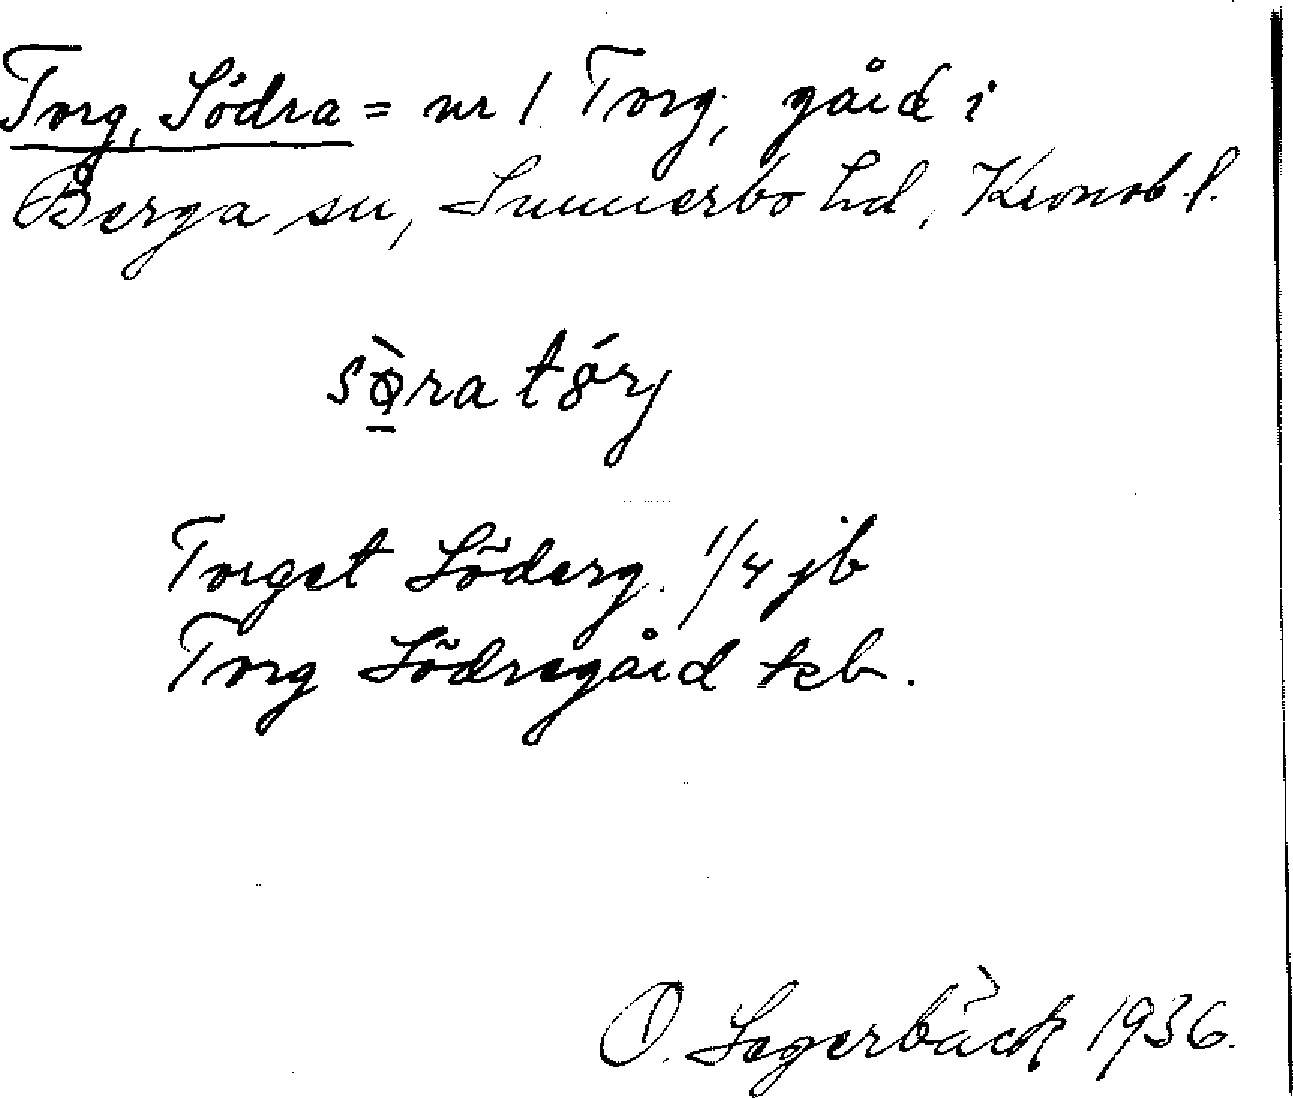 Torg, Södra = nr 1 Torg, gård i
Berga sn, Sunnerbo hd, Kronob. l.
sö̀ra tórj
Torget Söderg. 1/4 jb
Torg Södregård teb.
O. Segerbäck 1936.